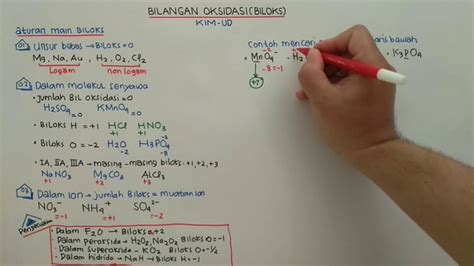 BILANGAN OKSIDASI (BILOKS)
KIM-UD
aturan main BILOKS
01 Unsur bebas → BILOKS = 0
Mg, Na, Au, H2, O2, Cl2
logam non logam
02 Dalam molekul senyawa
• Jumlah Bil oksidasi = 0
H2SO4 = 0 KMnO4 = 0
• Biloks H = +1 HCl HNO3
+1 +1
• Biloks O = -2 H2O H3PO4
-2 -8
• IA, IIA, IIIA → masing-masing biloks: +1, +2, +3
NaNO3 MgCO3 AlCl3
+1 +2 +3
03 Dalam ion → jumlah Biloks = muatan ion
NO3⁻ = -1 NH4⁺ = +1 SO4²⁻ = -2
Pengecualian
• Dalam F2O → BILOKS O +2
• Dalam peroksida → H2O2, Na2O2 Biloks O = -1
• Dalam superoksida - KO2 Biloks O = -1/2
• Dalam hidrida → NaH → Biloks H = -1
Contoh mencari
aris bawah
-2
• MnO4⁻ • H2
-8 = -1
+7
• K3PO4